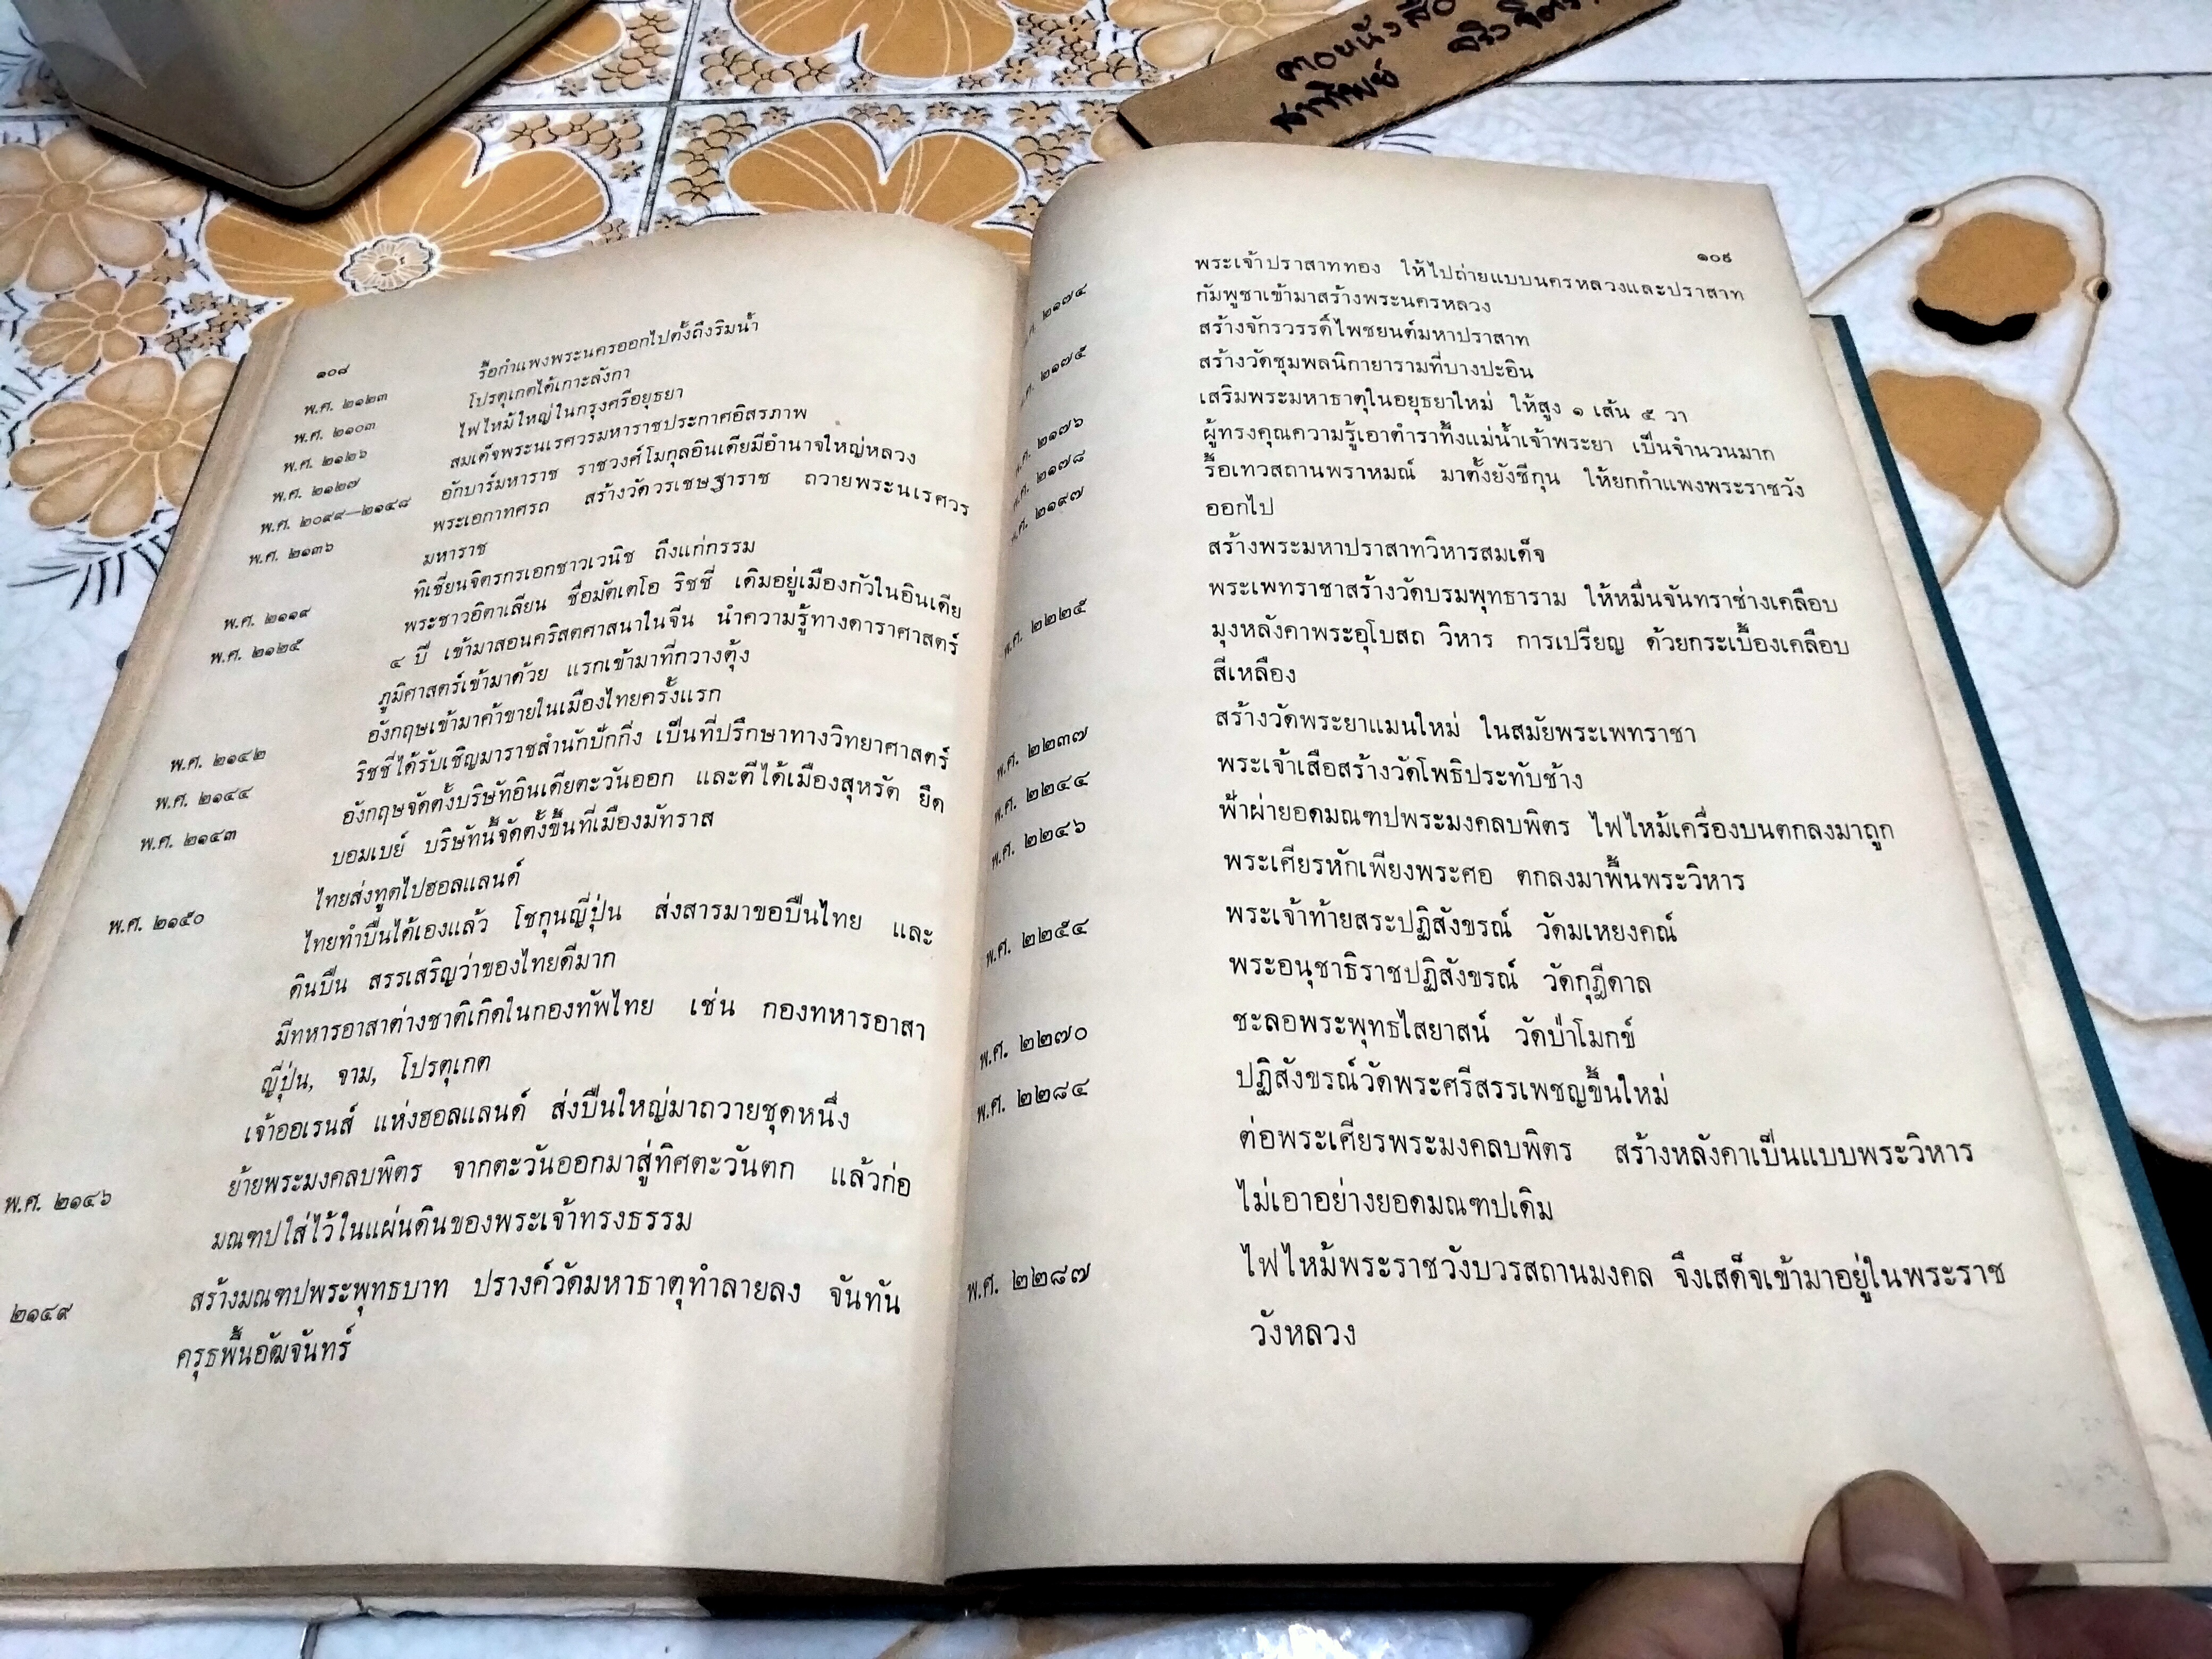 ๑๐๘
พ.ศ. ๒๑๒๓ รื้อกำแพงพระนครออกไปตั้งถึงริมน้ำ
พ.ศ. ๒๑๐๓ โปรตุเกตได้เกาะลังกา
พ.ศ. ๒๑๒๖ ไฟไหม้ใหญ่ในกรุงศรีอยุธยา
พ.ศ. ๒๑๒๗ สมเด็จพระนเรศวรมหาราชประกาศอิสรภาพ
พ.ศ. ๒๐๙๙—๒๑๔๘ อักบาร์มหาราช ราชวงศ์โมกุลอินเดียมีอำนาจใหญ่หลวง
พ.ศ. ๒๑๓๖ พระเอกาทศรถ สร้างวัดวรเชษฐาราช ถวายพระนเรศวร
มหาราช
พ.ศ. ๒๑๑๙ ทิเชี่ยนจิตรกรเอกชาวเวนิช ถึงแก่กรรม
พ.ศ. ๒๑๒๕ พระชาวอิตาเลียน ชื่อมัตเตโอ ริชชี่ เดิมอยู่เมืองกัวในอินเดีย
๔ ปี เข้ามาสอนคริสตศาสนาในจีน นำความรู้ทางดาราศาสตร์
ภูมิศาสตร์เข้ามาด้วย แรกเข้ามาที่กวางตุ้ง
พ.ศ. ๒๑๔๒ อังกฤษเข้ามาค้าขายในเมืองไทยครั้งแรก
พ.ศ. ๒๑๔๔ ริชชี่ได้รับเชิญมาราชสำนักปักกิ่ง เป็นที่ปรึกษาทางวิทยาศาสตร์
พ.ศ. ๒๑๔๓ อังกฤษจัดตั้งบริษัทอินเดียตะวันออก และตีได้เมืองสุหรัด ยึด
บอมเบย์ บริษัทนี้จัดตั้งขึ้นที่เมืองมัทราส
พ.ศ. ๒๑๕๐ ไทยส่งทูตไปฮอลแลนด์
ไทยทำปืนได้เองแล้ว โชกุนญี่ปุ่น ส่งสารมาขอปืนไทย และ
ดินปืน สรรเสริญว่าของไทยดีมาก
มีทหารอาสาต่างชาติเกิดในกองทัพไทย เช่น กองทหารอาสา
ญี่ปุ่น, จาม, โปรตุเกต
เจ้าออเรนส์ แห่งฮอลแลนด์ ส่งปืนใหญ่มาถวายชุดหนึ่ง
พ.ศ. ๒๑๔๖ ย้ายพระมงคลบพิตร จากตะวันออกมาสู่ทิศตะวันตก แล้วก่อ
มณฑปใส่ไว้ในแผ่นดินของพระเจ้าทรงธรรม
๒๑๔๙ สร้างมณฑปพระพุทธบาท ปรางค์วัดมหาธาตุทำลายลง จันทัน
ครุธพื้นอัฒจันทร์
๑๐๙
ศ. ๒๑๗๔ พระเจ้าปราสาททอง ให้ไปถ่ายแบบนครหลวงและปราสาท
กัมพูชาเข้ามาสร้างพระนครหลวง
ศ. ๒๑๗๕ สร้างจักรวรรดิ์ไพชยนต์มหาปราสาท
สร้างวัดชุมพลนิกายารามที่บางปะอิน
ศ. ๒๑๗๖ เสริมพระมหาธาตุในอยุธยาใหม่ ให้สูง ๑ เส้น ๕ วา
ศ. ๒๑๗๘ ผู้ทรงคุณความรู้เอาตำราทิ้งแม่น้ำเจ้าพระยา เป็นจำนวนมาก
ศ. ๒๑๙๗ รื้อเทวสถานพราหมณ์ มาตั้งยังชีกุน ให้ยกกำแพงพระราชวัง
ออกไป
สร้างพระมหาปราสาทวิหารสมเด็จ
พ.ศ. ๒๒๒๕ พระเพทราชาสร้างวัดบรมพุทธาราม ให้หมื่นจันทราช่างเคลือบ
มุงหลังคาพระอุโบสถ วิหาร การเปรียญ ด้วยกระเบื้องเคลือบ
สีเหลือง
พ.ศ. ๒๒๓๗ สร้างวัดพระยาแมนใหม่ ในสมัยพระเพทราชา
พ.ศ. ๒๒๔๔ พระเจ้าเสือสร้างวัดโพธิประทับช้าง
พ.ศ. ๒๒๔๖ ฟ้าผ่ายอดมณฑปพระมงคลบพิตร ไฟไหม้เครื่องบนตกลงมาถูก
พระเศียรหักเพียงพระศอ ตกลงมาพื้นพระวิหาร
พ.ศ. ๒๒๕๔ พระเจ้าท้ายสระปฏิสังขรณ์ วัดมเหยงคณ์
พระอนุชาธิราชปฏิสังขรณ์ วัดกุฎีดาล
พ.ศ. ๒๒๗๐ ชะลอพระพุทธไสยาสน์ วัดป่าโมกข์
พ.ศ. ๒๒๘๔ ปฏิสังขรณ์วัดพระศรีสรรเพชญขึ้นใหม่
ต่อพระเศียรพระมงคลบพิตร สร้างหลังคาเป็นแบบพระวิหาร
ไม่เอาอย่างยอดมณฑปเดิม
พ.ศ. ๒๒๘๗ ไฟไหม้พระราชวังบวรสถานมงคล จึงเสด็จเข้ามาอยู่ในพระราช
วังหลวง